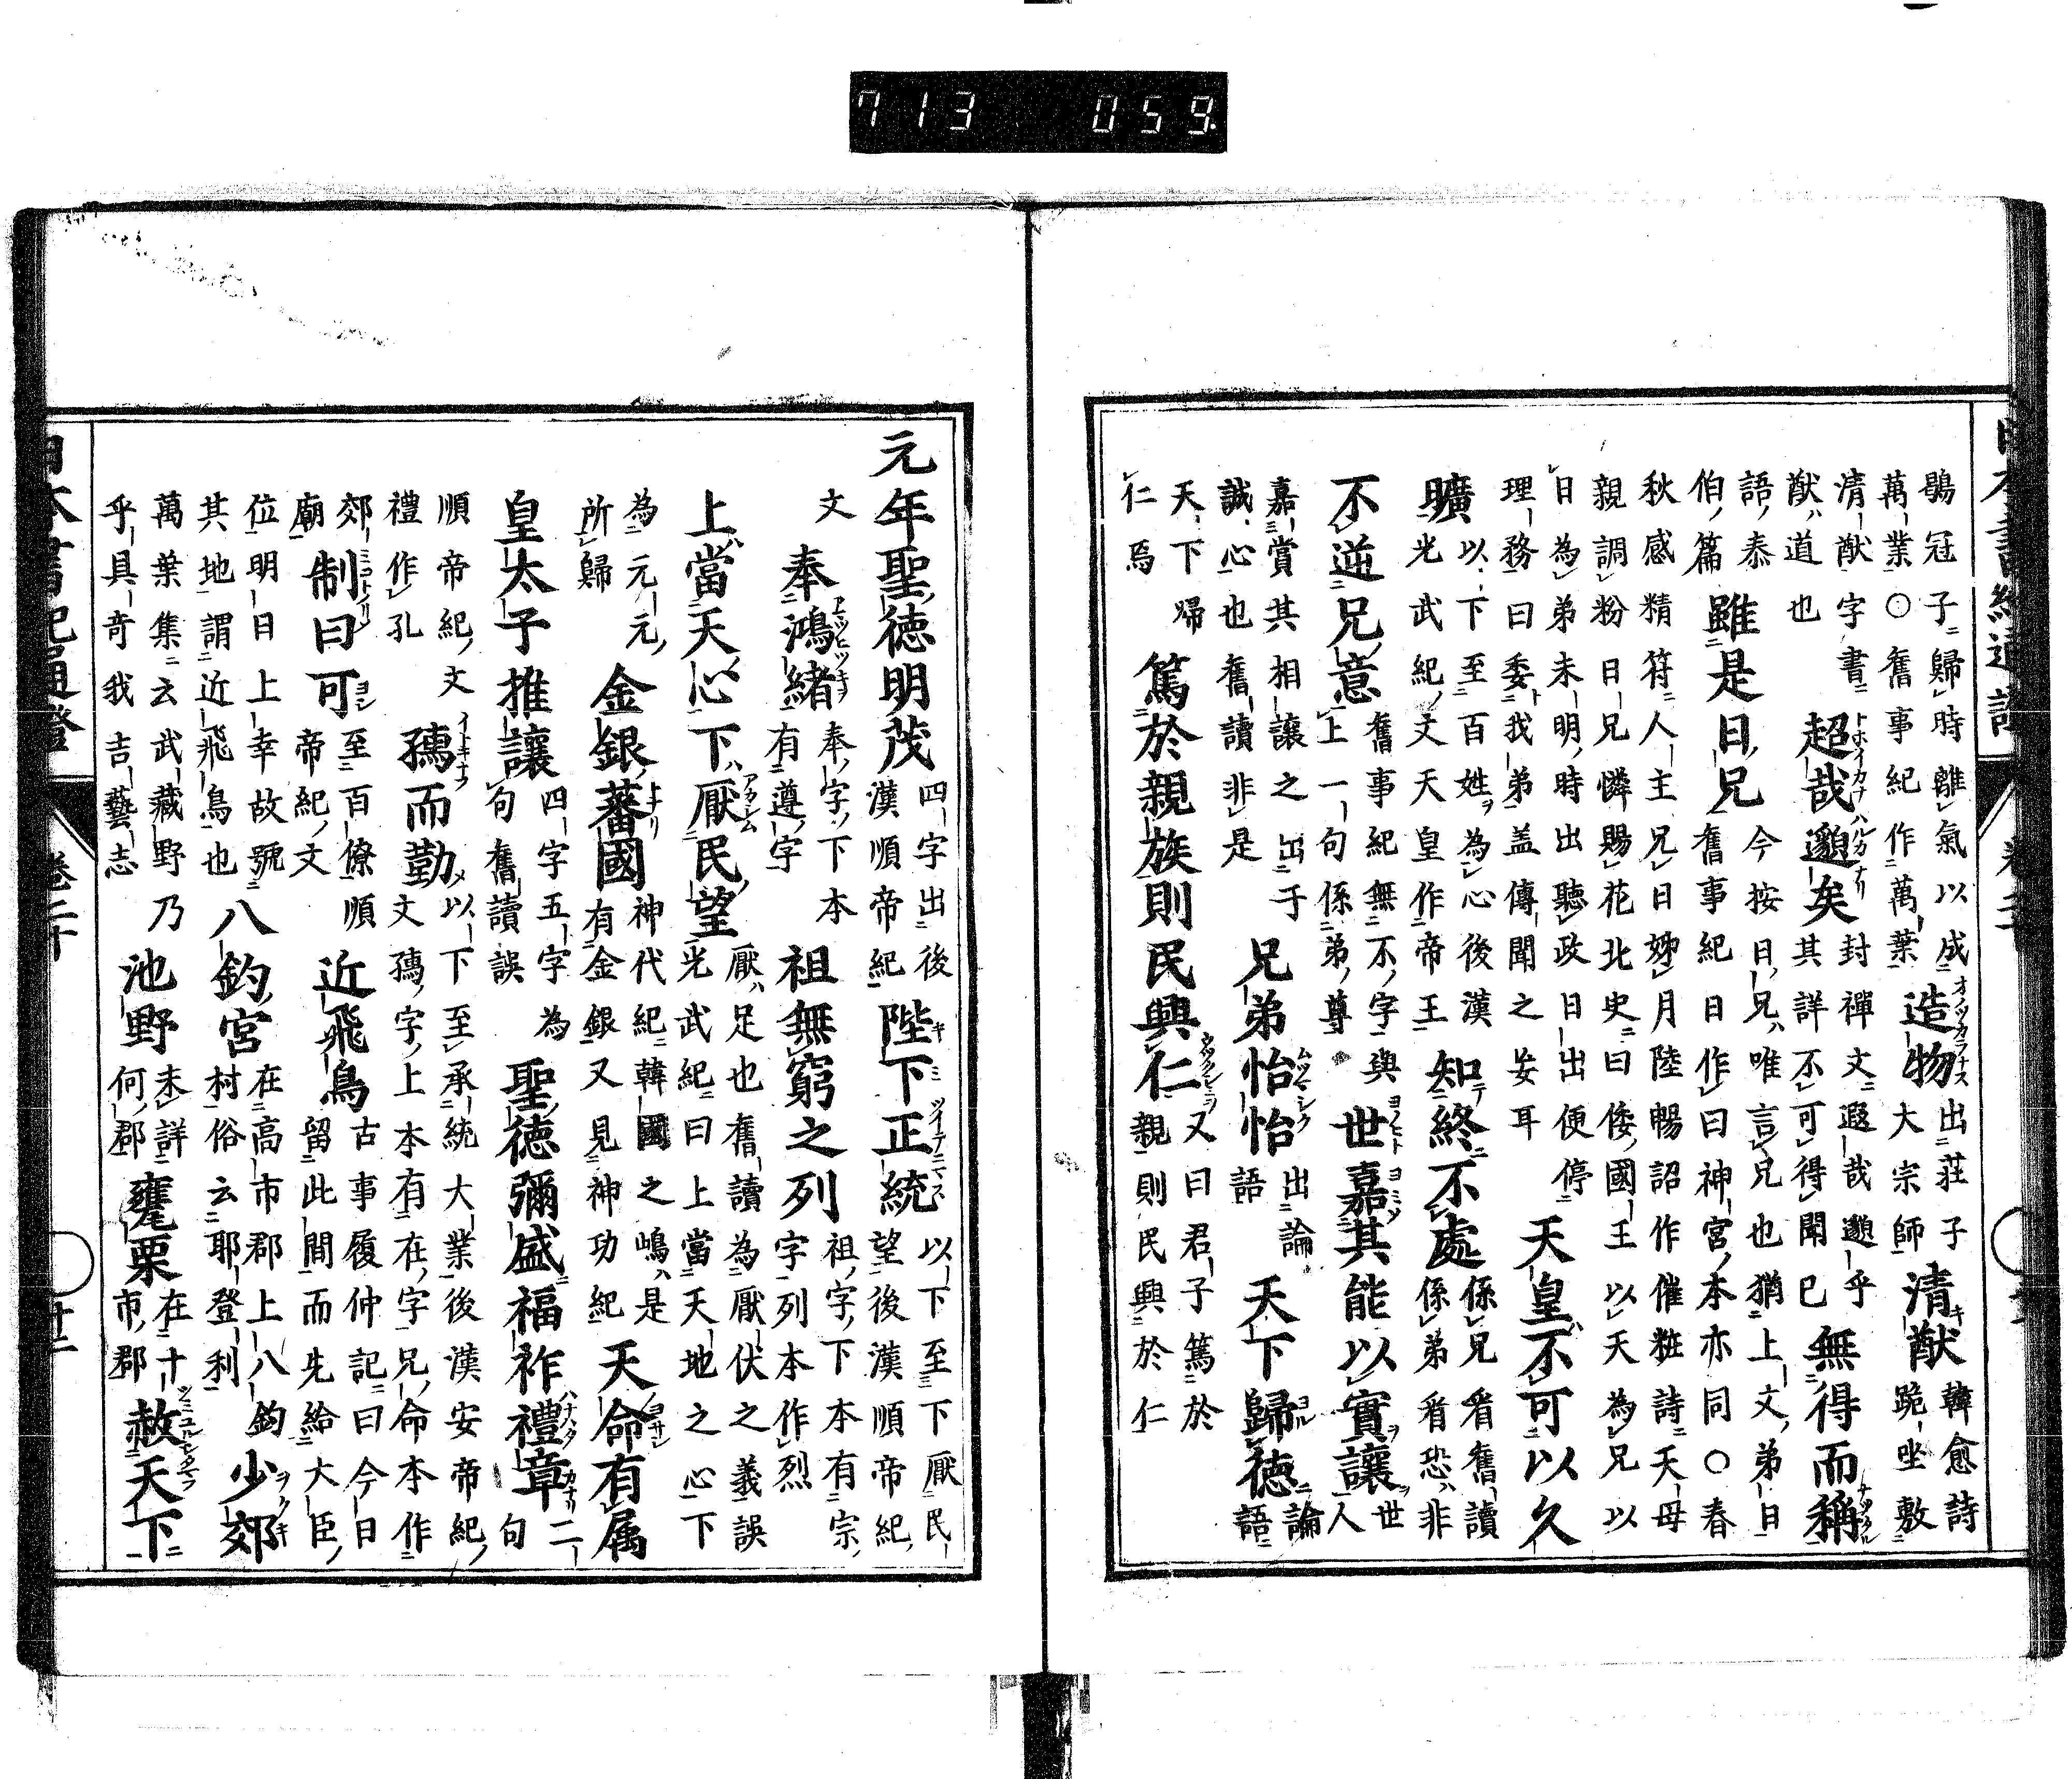 日本書紀通證 卷二十
鶡冠子歸時離氣以成
萬業〇舊事紀作萬葉
造物
出莊子
大宗師
清猷
韓愈詩
跪坐敷
清猷字書
猷道也
超哉邈矣
封禪文遐哉邈乎
其詳不可得聞已
無得而稱
語泰
伯篇
雖是曰兄
今按曰兄唯言兄也猶上文弟曰
舊事紀曰作曰神宮本亦同〇春
秋感精符人主兄日姊月陸暢詔作催粧詩天母
親調粉日兄憐賜花北史曰倭國王以天為兄以
日為弟未明時出聽政日出便停
理務曰委我弟盖傳聞之妄耳
天皇不可以久
曠
以下至百姓為心後漢
光武紀文天皇作帝王
知終不處
係兄看舊讀
係弟看恐非
不逆兄意
舊事紀無不字與
上一句係弟尊
世嘉其能以實讓
世
人
嘉賞其相讓之出于
誠心也舊讀非是
兄弟怡怡
出論
語
天下歸德
論
語
天下歸
仁焉
篤於親族則民興仁
又曰君子篤於
親則民興於仁
元年聖德明茂
四字出後
漢順帝紀
陛下正統
以下至下厭民
望後漢順帝紀
文
奉鴻緒
奉字下本
有遵字
祖無窮之列
祖字下本有宗
字列本作烈
上當天心下厭民望
厭足也舊讀為厭伏之義誤
光武紀曰上當天地之心下
為元元
所歸
金銀蕃國
神代紀韓國之嶋是
有金銀又見神功紀
天命有属
皇太子推讓
四字五字為
句舊讀誤
聖德彌盛福祚禮章
二
句
順帝紀文
禮作孔
孺而勤
以下至承統大業後漢安帝紀
文孺字上本有在字兄命本作
郊
廟
制曰可
至百僚順
帝紀文
近飛鳥
古事履仲記曰今日
留此間而先給大臣
位明日上幸故號
其地謂近飛鳥也
八釣宮
在高市郡上八釣
村俗云耶登利
少郊
萬葉集云武藏野乃
乎具奇我吉藝志
池野
未詳
何郡
甕栗
在十
市郡
赦天下
日本書紀通證 卷二十
713 059